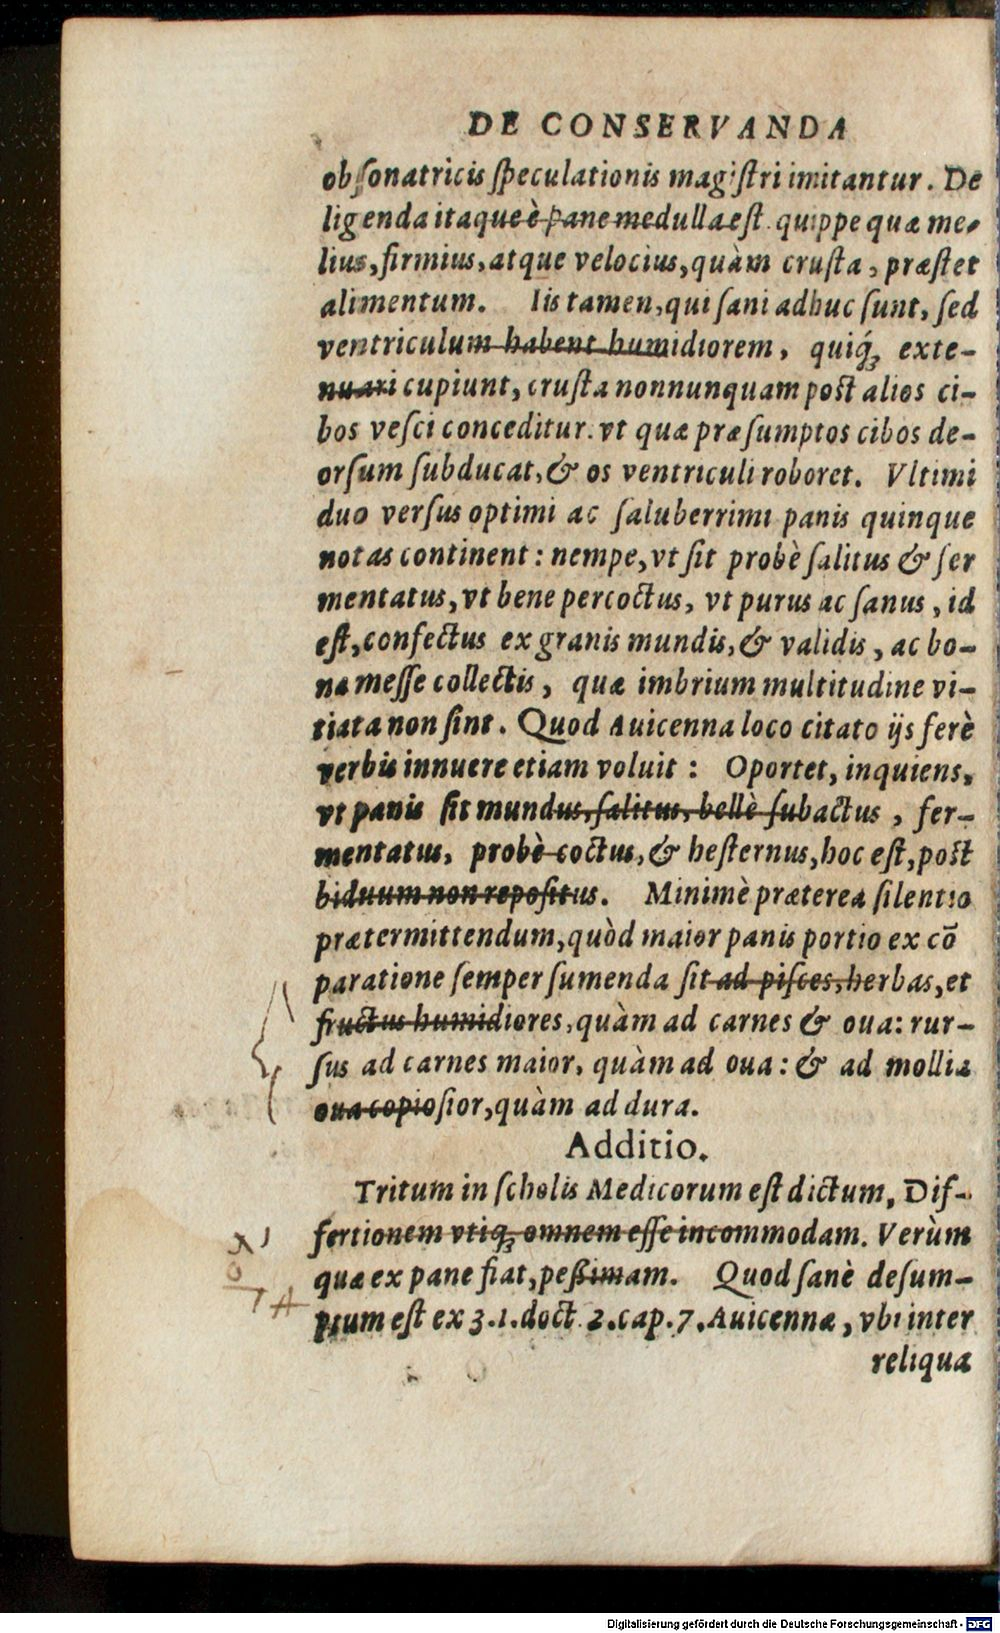 DE CONSERVANDA
obſonatricis ſpeculationis magiſtri imitantur. De
ligenda itaque è pane medulla eſt. quippe quæ me-
lius, firmius, atque velocius, quàm cruſta, præſtet
alimentum. Iis tamen, qui ſani adhuc ſunt, ſed
ventriculum habent humidiorem, quiq́ꝫ exte-
nuari cupiunt, cruſta nonnunquam poſt alios ci-
bos veſci conceditur. vt quæ præſumptos cibos de-
orſum ſubducat, & os ventriculi roboret. Vltimi
duo verſus optimi ac ſaluberrimi panis quinque
notas continent: nempe, vt ſit probè ſalitus & fer
mentatus, vt bene percoctus, vt purus ac ſanus, id
eſt, confectus ex granis mundis, & validis, ac bo-
na meſſe collectis, quæ imbrium multitudine vi-
tiata non ſint. Quod Auicenna loco citato ijs ferè
verbis innuere etiam voluit: Oportet, inquiens,
vt panis ſit mundus, ſalitus, bellè ſubactus, fer-
mentatus, probè coctus, & heſternus, hoc eſt, poſt
biduum non repoſitus. Minimè præterea ſilentio
prætermittendum, quòd maior panis portio ex cō
paratione ſemper ſumenda ſit ad piſces, herbas, et
fructus humidiores, quàm ad carnes & oua: rur-
ſus ad carnes maior, quàm ad oua: & ad mollia
oua copioſior, quàm ad dura.
Additio.
Tritum in ſcholis Medicorum eſt dictum, Dif-
fertionem vtiqꝫ omnem eſſe incommodam. Verùm
quæ ex pane fiat, peßimam. Quod ſanè deſum-
ptum eſt ex 3.1. doct. 2. cap. 7. Auicennæ, vbi inter
reliqua
Digitalisierung gefördert durch die Deutsche Forschungsgemeinschaft - DFG